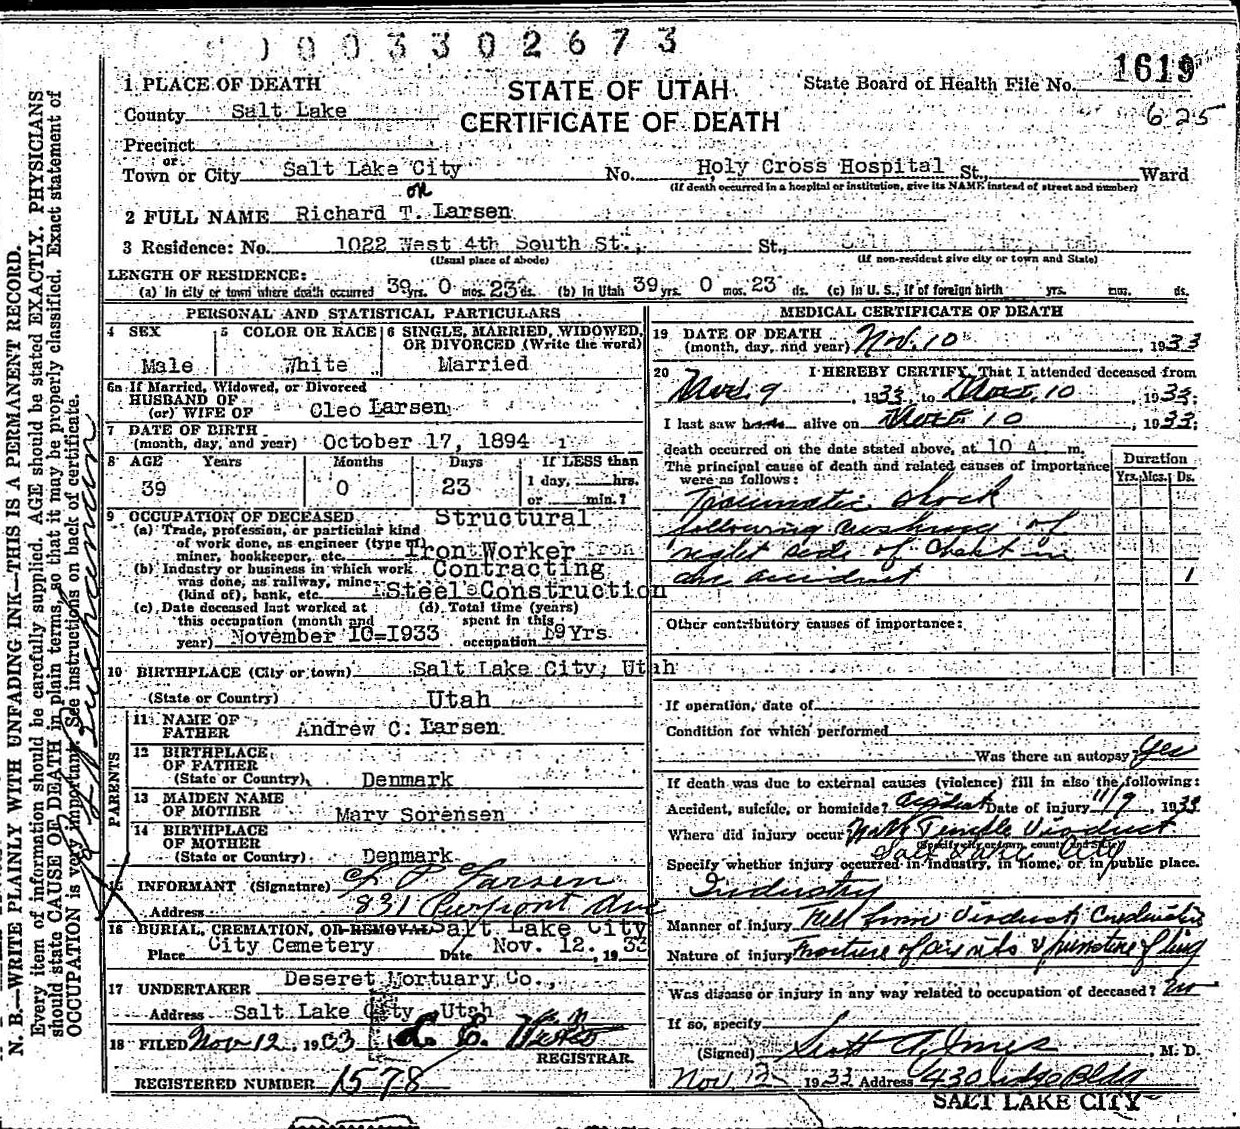 0 0 3 3 0 2 6 7 3
1 PLACE OF DEATH
STATE OF UTAH
State Board of Health File No. 1619
County Salt Lake
CERTIFICATE OF DEATH
625
Precinct
or
Town or City Salt Lake City No. Holy Cross Hospital St., Ward
(If death occurred in a hospital or institution, give its NAME instead of street and number)
on
2 FULL NAME Richard T. Larsen
3 Residence: No. 1022 West 4th South St., St., Salt Lake City, Utah
(Usual place of abode) (If non-resident give city or town and State)
LENGTH OF RESIDENCE:
(a) In city or town where death occurred 39 yrs. 0 mos. 23 ds. (b) In Utah 39 yrs. 0 mos. 23 ds. (c) In U. S., if of foreign birth yrs. mos. ds.
PERSONAL AND STATISTICAL PARTICULARS
4 SEX 5 COLOR OR RACE 6 SINGLE, MARRIED, WIDOWED, OR DIVORCED (Write the word)
Male White Married
6a If Married, Widowed, or Divorced
HUSBAND OF
(or) WIFE OF Cleo Larsen
7 DATE OF BIRTH
(month, day, and year) October 17, 1894
8 AGE Years Months Days If LESS than
39 0 23 1 day, hrs.
or min.?
9 OCCUPATION OF DECEASED Structural
(a) Trade, profession, or particular kind
of work done, as engineer (type of)
miner, bookkeeper, etc. Iron Worker
(b) Industry or business in which work Contracting
was done, as railway, mine
(kind of), bank, etc. Steel Construction
(c) Date deceased last worked at (d) Total time (years)
this occupation (month and spent in this
year) November 10-1933 occupation 19 Yrs.
10 BIRTHPLACE (City or town) Salt Lake City, Utah
(State or Country) Utah
PARENTS
11 NAME OF
FATHER Andrew C. Larsen
12 BIRTHPLACE
OF FATHER
(State or Country) Denmark
13 MAIDEN NAME
OF MOTHER Mary Sorensen
14 BIRTHPLACE
OF MOTHER
(State or Country) Denmark
15 INFORMANT (Signature) L P Larsen
Address 831 Pierpont Ave
16 BURIAL, CREMATION, OR REMOVAL Salt Lake City
Place City Cemetery Date Nov. 12, 1933
17 UNDERTAKER Deseret Mortuary Co.,
Address Salt Lake City Utah
18 FILED Nov 12, 1933
REGISTRAR.
REGISTERED NUMBER 1578
MEDICAL CERTIFICATE OF DEATH
19 DATE OF DEATH
(month, day, and year) Nov. 10, 1933
20 I HEREBY CERTIFY, That I attended deceased from
Nov. 9, 1933, to Nov. 10, 1933;
I last saw alive on Nov. 10, 1933;
death occurred on the date stated above, at 10 A. m.
The principal cause of death and related causes of importance
were as follows:
Duration
Yrs. Mos. Ds.
Traumatic shock
following crushing of
right side of chest in
an accident 1
Other contributory causes of importance:
If operation, date of
Condition for which performed
Was there an autopsy yes
If death was due to external causes (violence) fill in also the following:
Accident, suicide, or homicide? Accident Date of injury 11/9, 1933
Where did injury occur North Temple Viaduct
(Specify city or town, county and State)
Salt Lake City
Specify whether injury occurred in industry, in home, or in public place.
Industry
Manner of injury Fell from Viaduct Construction
Nature of injury Fracture of ribs & puncture of lung
Was disease or injury in any way related to occupation of deceased?
If so, specify
(Signed) , M. D.
Nov 12 1933 Address Bldg
SALT LAKE CITY
N. B.—WRITE PLAINLY WITH UNFADING INK—THIS IS A PERMANENT RECORD.
Every item of information should be carefully supplied. AGE should be stated EXACTLY. PHYSICIANS
should state CAUSE OF DEATH in plain terms, so that it may be properly classified. Exact statement of
OCCUPATION is very important. See instructions on back of certificate.